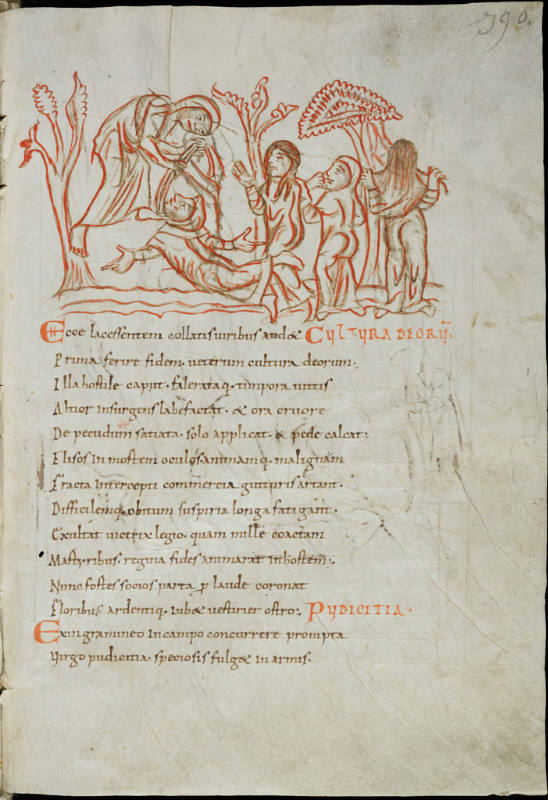 Ecce lacessentem collatis uiribus aud& CULTURA DEORŪ.
Prima ferire fidem. ueterum cultura deorum.
Illa hostile caput. falerataq; timpora uittis
Altior insurgens labefactat. & ora cruore
De pecudum satiata. solo applicat. & pede calcat:
Elisos in mortem oculos. animamq. malignam
Fracta intercepti commercia gutturis artant.
Difficilemq. obitum suspiria longa fatigant.
Exultat uictrix legio. quam mille coactam
Martyribus. regina fides animarat in hostem:
Nunc fortes socios parta p laude coronat
Floribus ardentiq. iub& uestirier ostro: PUDICITIA.
Exin gramineo in campo concurrere prompta
Virgo pudicitia. speciosis fulg& in armis.